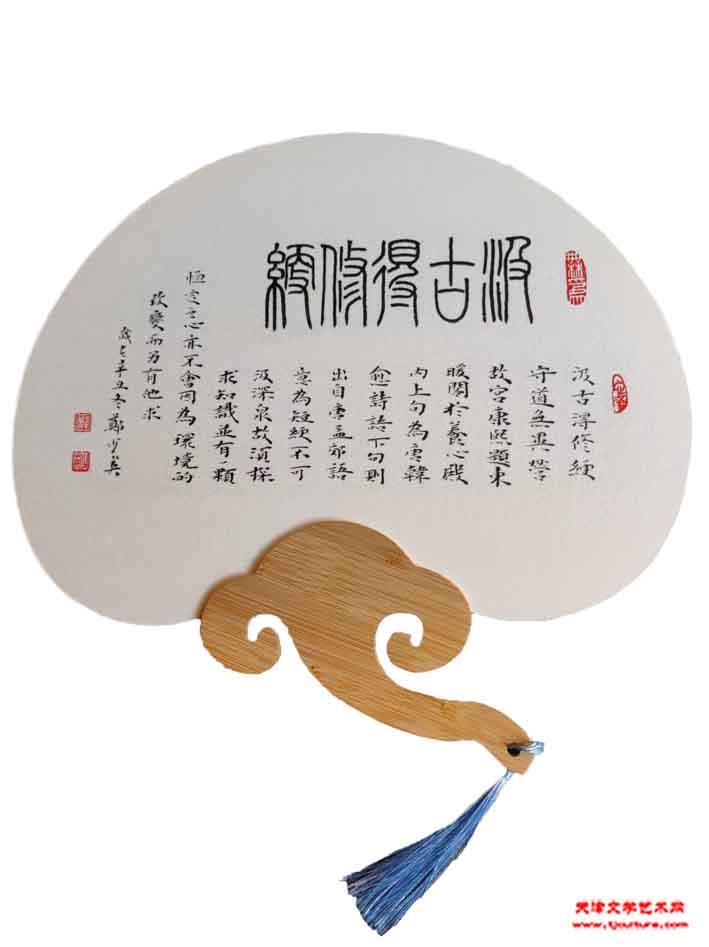 汲古得修綆
汲古淂修綆
守道無異營
故宮康熙題東
暖閣於養心殿
内上句為唐韓
愈詩語下句則
出自唐孟郊語
意為短綆不可
汲深泉故須探
求知識並有一顆
恆定之心亦不會因為環境的
改變而另有他求
歲在辛丑冬鄭少英
天津文学艺术网
www.tjculture.com